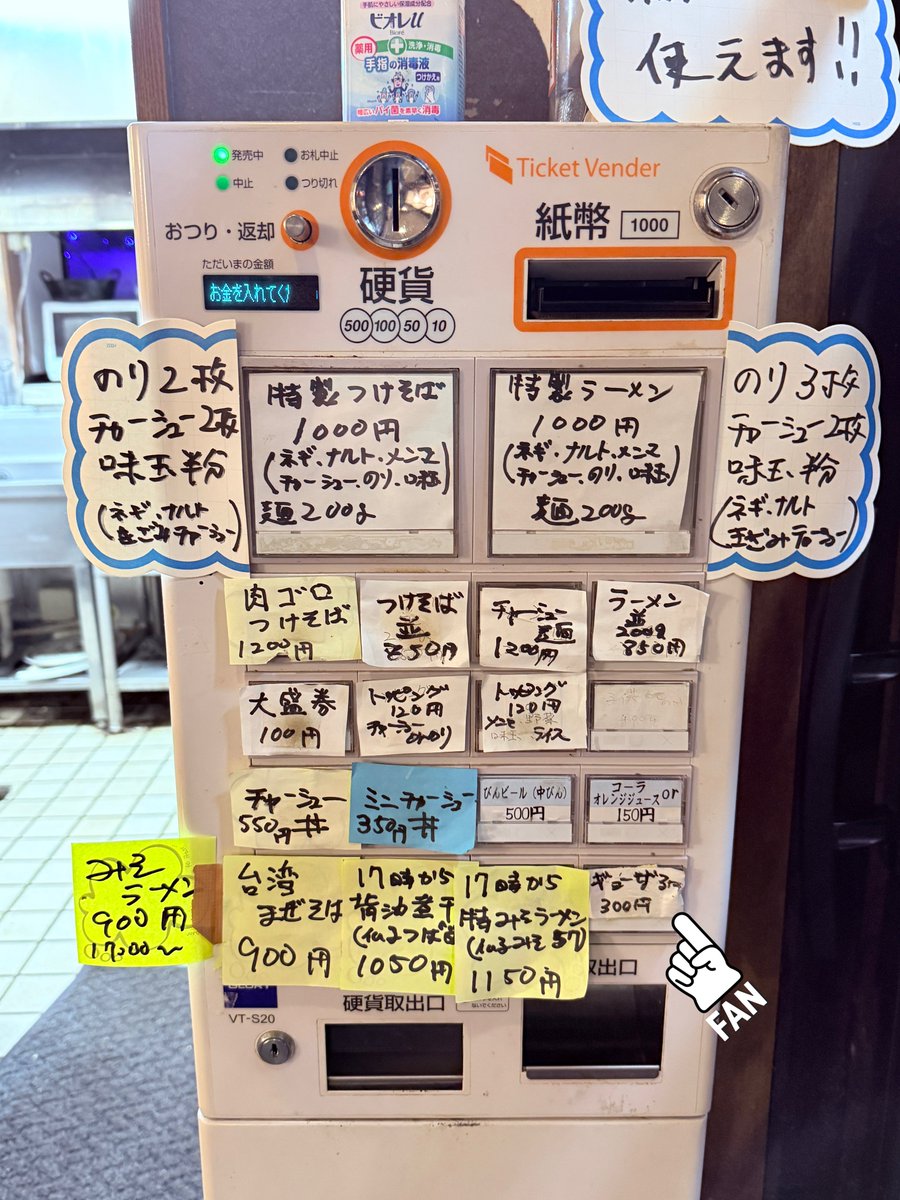 ビオレu
Bioré
薬用
洗浄・消毒
手指の消毒液
つけかえ用
幅広いバイ菌を素早く消毒
使えます!!
発売中
お札中止
中止
つり切れ
おつり・返却
ただいまの金額
お金を入れてく
硬貨
500 100 50 10
Ticket Vender
紙幣 1000
のり2枚
チャーシュー2枚
味玉半分
(ネギ、ナルト
きざみチャーシュー)
特製つけそば
1000円
(ネギ、ナルト、メンマ
チャーシュー、のり、味玉)
麺200g
特製ラーメン
1000円
(ネギ、ナルト、メンマ
チャーシュー、のり、味玉)
麺200g
のり3枚
チャーシュー2枚
味玉半分
(ネギ、ナルト
きざみチャーシュー)
肉ゴロ
つけそば
1200円
つけそば
並
850円
チャーシュー
麺
1200円
ラーメン
並
200g
850円
大盛券
100円
トッピング
120円
チャーシュー
のり
トッピング
120円
メンマ 野菜
味玉、ライス
チャーシュー
550円丼
ミニチャーシュー
350円丼
びんビール(中びん)
500円
コーラ
オレンジジュースor
150円
みそ
ラーメン
900円
17:00〜
台湾
まぜそば
900円
17時から
背油煮干
1050円
17時から
特みそラーメン
1150円
ギョーザ3ヶ
300円
取出口
硬貨取出口
VT-S20
FAN